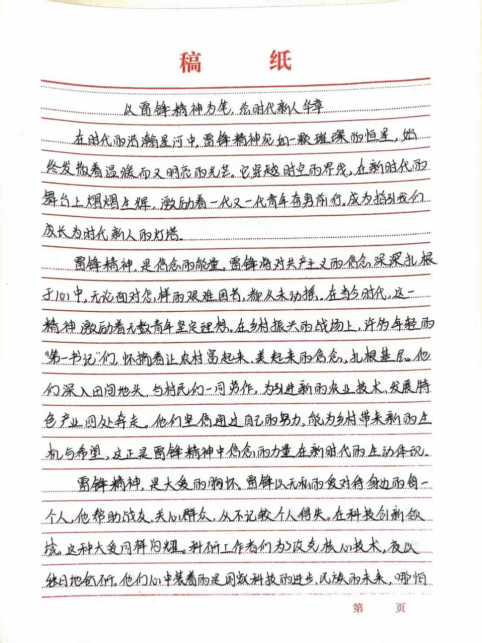 稿 纸
以雷锋精神为笔,绘时代新人华章
在时代的浩瀚星河中,雷锋精神宛如一颗璀璨的恒星,始
终发散着温暖而又明亮的光芒。它穿越时空的界限,在新时代的
舞台上熠熠生辉,激励着一代又一代青年奋勇前行,成为指引我们
成长为时代新人的灯塔。
雷锋精神,是信念的能量。雷锋将对共产主义的信念深深扎根
于心中,无论面对怎样的艰难困苦,都从未动摇。在当今时代,这一
精神激励着无数青年坚定理想。在乡村振兴的战场上,许多年轻的
"第一书记"们,怀揣着让农村富起来、美起来的信念,扎根基层。他
们深入田间地头,与村民们一同劳作,为引进新的农业技术、发展特
色产业四处奔走。他们坚信通过自己的努力,能为乡村带来新的生
机与希望,这正是雷锋精神中信念的力量在新时代的生动体现。
雷锋精神,是大爱的胸怀。雷锋以无私的爱对待身边的每一
个人,他帮助战友、关心群众,从不计较个人得失。在科技创新领
域,这种大爱同样闪耀。科研工作者们为了攻克核心技术,夜以
继日地钻研。他们心中装着的是国家科技的进步、民族的未来,哪怕
第 页